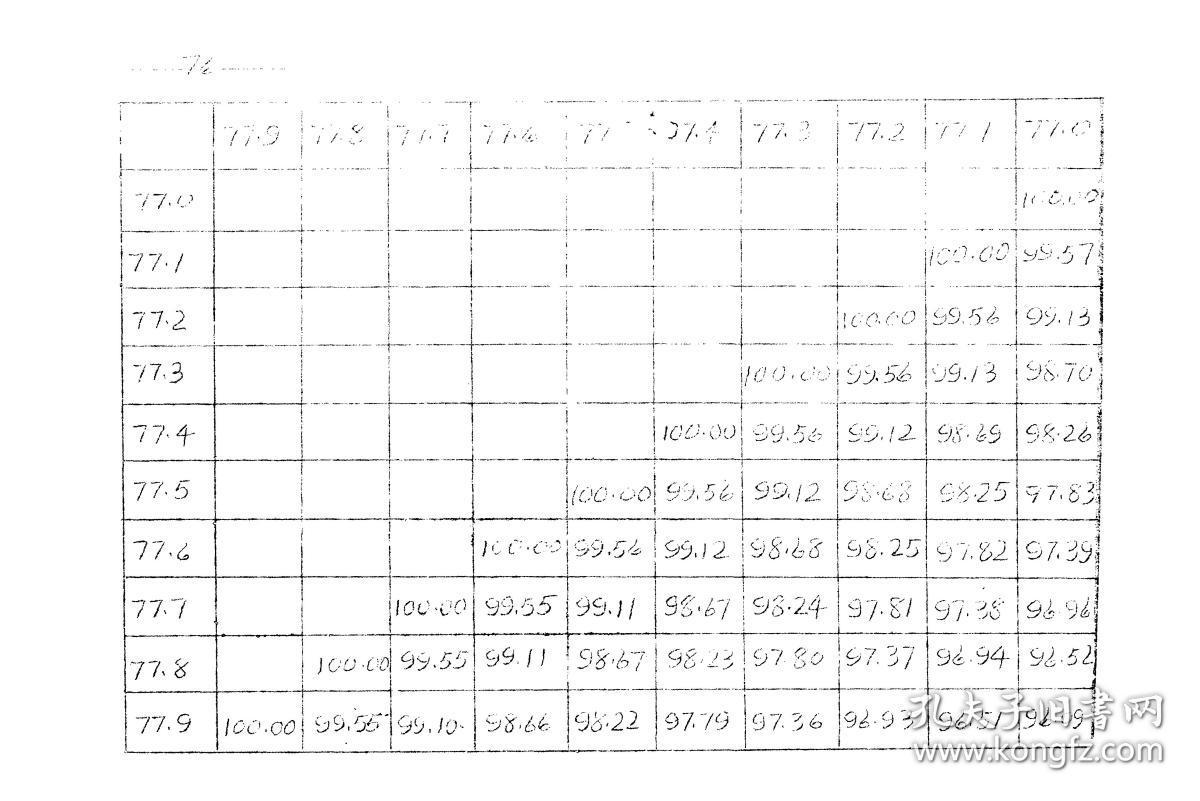 76
77.9 77.8 77.7 77.6 77 77.4 77.3 77.2 77.1 77.0
77.0 100.00
77.1 100.00 99.57
77.2 100.00 99.56 99.13
77.3 100.00 99.56 99.13 98.70
77.4 100.00 99.56 99.12 98.69 98.26
77.5 100.00 99.56 99.12 98.68 98.25 97.83
77.6 100.00 99.56 99.12 98.68 98.25 97.82 97.39
77.7 100.00 99.55 99.11 98.67 98.24 97.81 97.38 96.96
77.8 100.00 99.55 99.11 98.67 98.23 97.80 97.37 96.94 96.52
77.9 100.00 99.55 99.10 98.66 98.22 97.79 97.36 96.93 96.51 96.09
孔夫子旧书网
www.kongfz.com